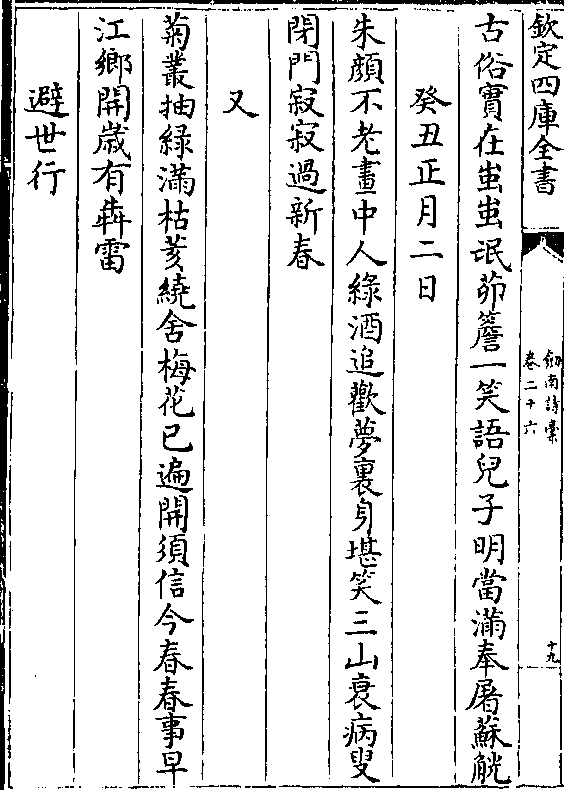 欽定四庫全書
劔南詩槀
卷二十六
十九
古俗實在蚩蚩氓茆簷一笑語兒子明當滿奉屠蘇觥
癸丑正月二日
朱顔不老畫中人綠酒追歡夢裏身堪笑三山衰病叟
閉門寂寂過新春
又
菊叢抽綠滿枯荄繞舍梅花已遍開須信今春春事早
江鄉開歲有犇雷
避世行